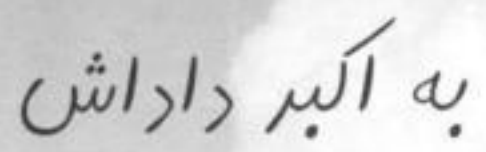 به اکبر داداش